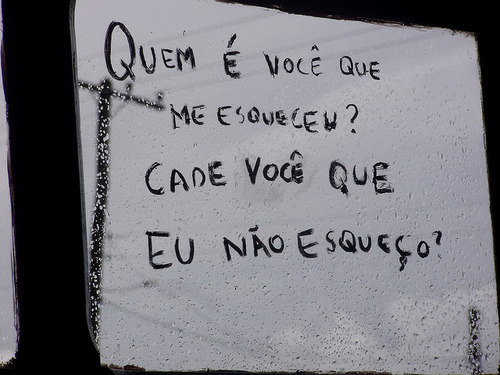 QUEM É VOCÊ QUE
ME ESQUECEU?
CADE VOCÊ QUE
EU NÃO ESQUEÇO?